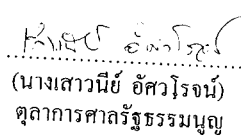 (นางเสาวนีย์ อัศวโรจน์)
ตุลาการศาลรัฐธรรมนูญ